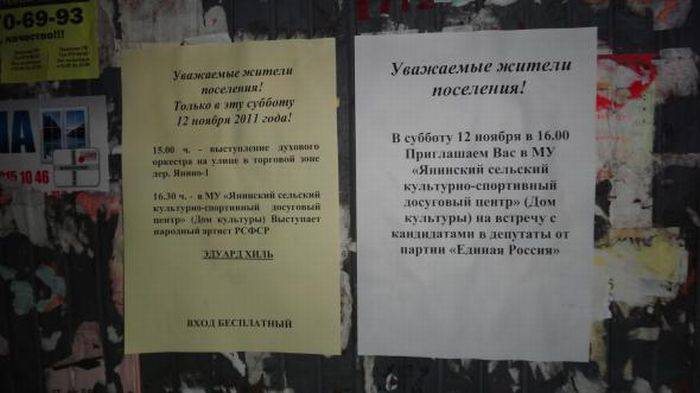 0-69-93
качество!!!
НА
215 10 46
Уважаемые жители
поселения!
Только в эту субботу
12 ноября 2011 года!
15.00 ч. - выступление духового
оркестра на улице в торговой зоне
дер. Янино-1
16.30 ч. - в МУ «Янинский сельский
культурно-спортивный досуговый
центр» (Дом культуры) Выступает
народный артист РСФСР
ЭДУАРД ХИЛЬ
ВХОД БЕСПЛАТНЫЙ
Уважаемые жители
поселения!
В субботу 12 ноября в 16.00
Приглашаем Вас в МУ
«Янинский сельский
культурно-спортивный
досуговый центр» (Дом
культуры) на встречу с
кандидатами в депутаты от
партии «Единая Россия»